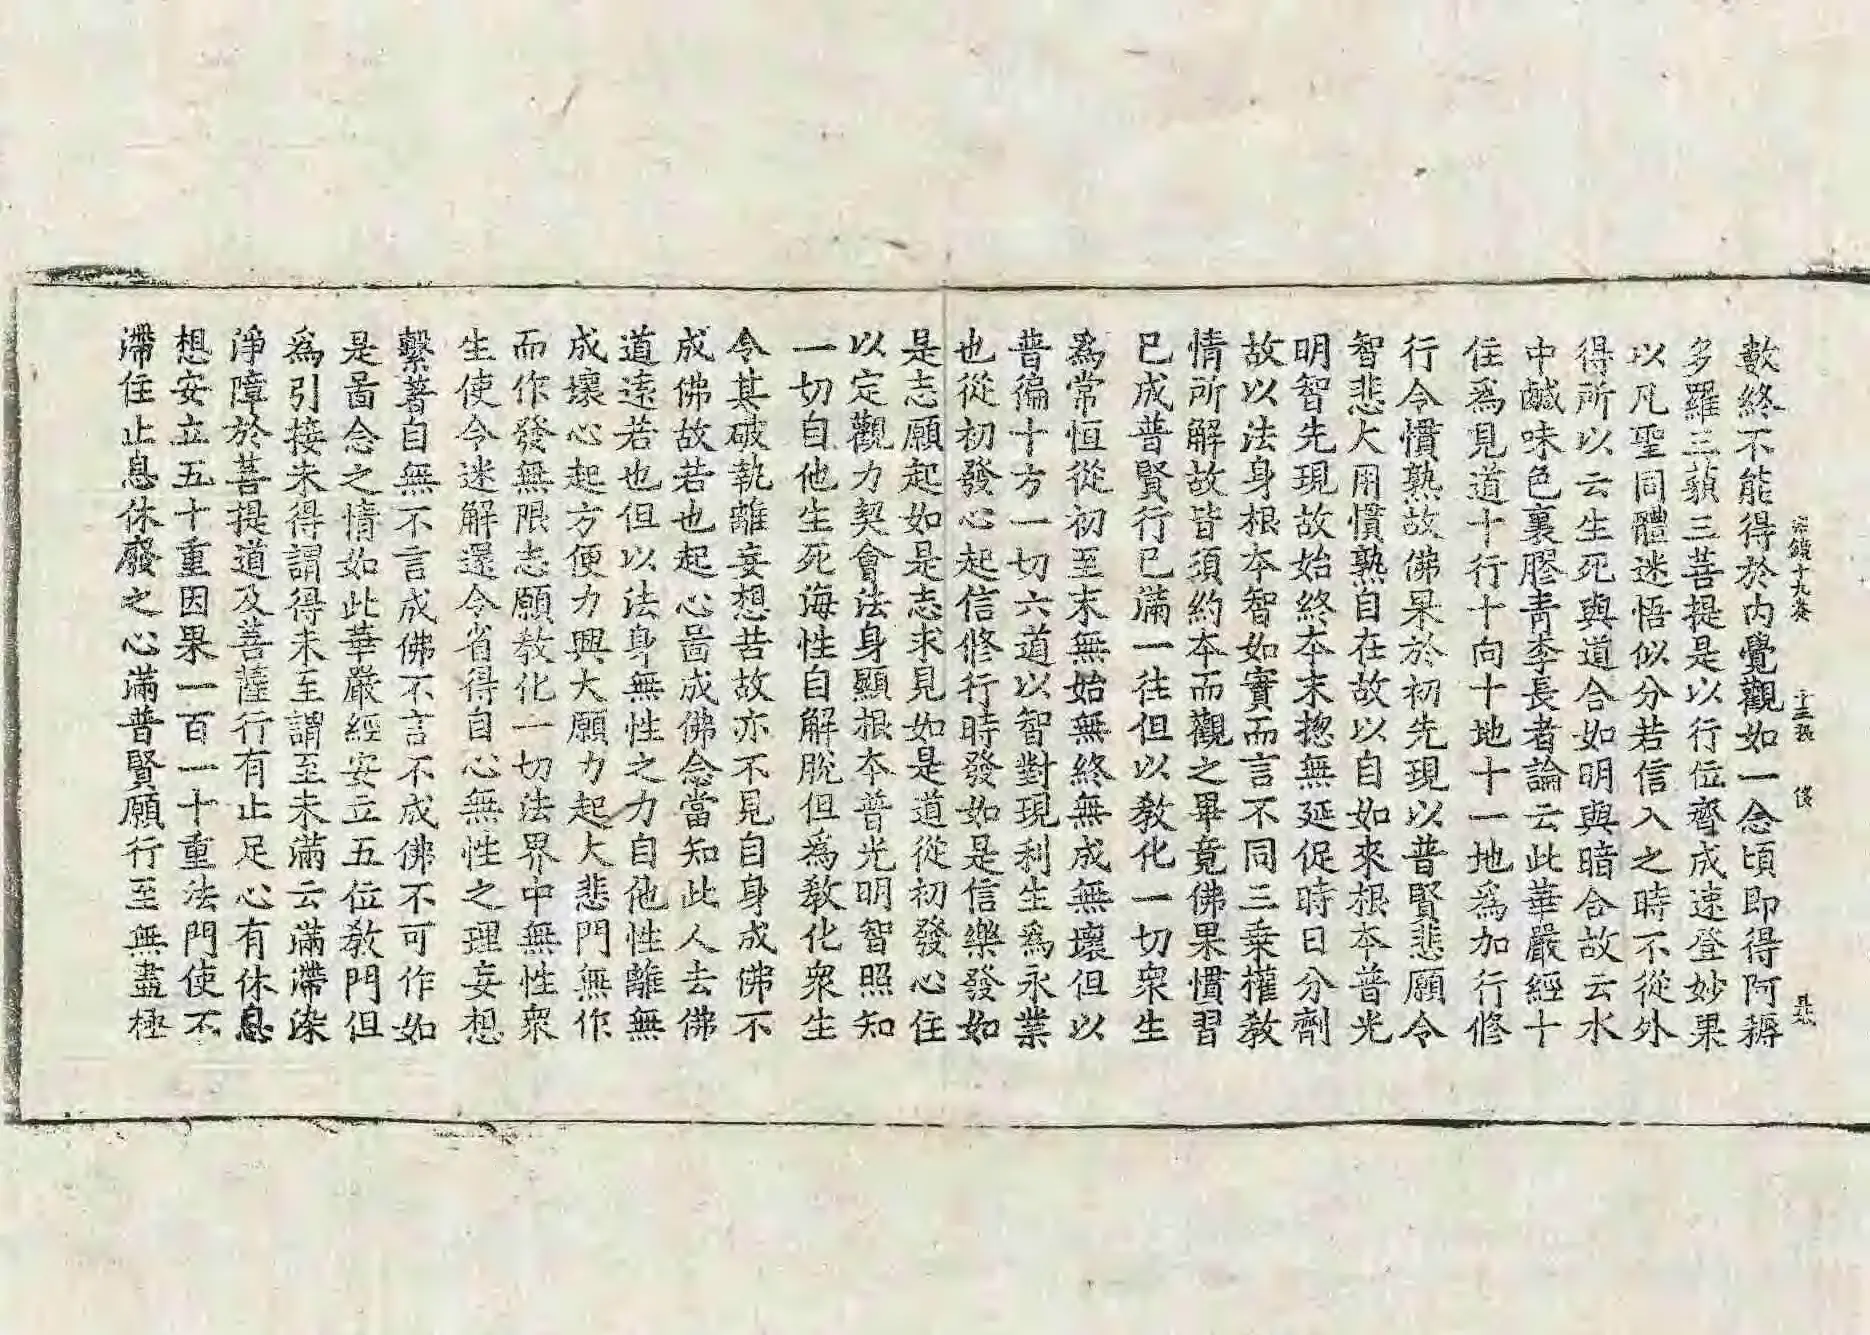 宗鏡十九卷 十二張 俊
數終不能得於內覺觀如一念頃即得阿耨
多羅三藐三菩提是以行位齊成速登妙果
以凡聖同體迷悟似分若信入之時不從外
得所以云生死與道合如明與暗合故云水
中鹹味色裏膠青李長者論云此華嚴經十
住爲見道十行十向十地十一地爲加行修
行令慣熟故佛果於初先現以普賢悲願令
智悲大用慣熟自在故以自如來根本普光
明智先現故始終本末揔無延促時日分劑
故以法身根本智如實而言不同三乘權教
情所解故皆須約本而觀之畢竟佛果慣習
已成普賢行已滿一往但以教化一切衆生
爲常恒從初至末無始無終無成無壞但以
普徧十方一切六道以智對現利生爲永業
也從初發心起信修行時發如是信樂發如
是志願起如是志求見如是道從初發心住
以定觀力契會法身顯根本普光明智照知
一切自他生死海性自解脫但爲教化衆生
令其破執離妄想苦故亦不見自身成佛不
成佛故若也起心啚成佛念當知此人去佛
道遠若也但以法身無性之力自他性離無
成壞心起方便力興大願力起大悲門無作
而作發無限志願教化一切法界中無性衆
生使令迷解還令省得自心無性之理妄想
繫著自無不言成佛不言不成佛不可作如
是啚念之情如此華嚴經安立五位教門但
爲引接未得謂得未至謂至未滿云滿滯染
淨障於菩提道及菩薩行有止足心有休息
想安立五十重因果一百一十重法門使不
滯住止息休廢之心滿普賢願行至無盡極